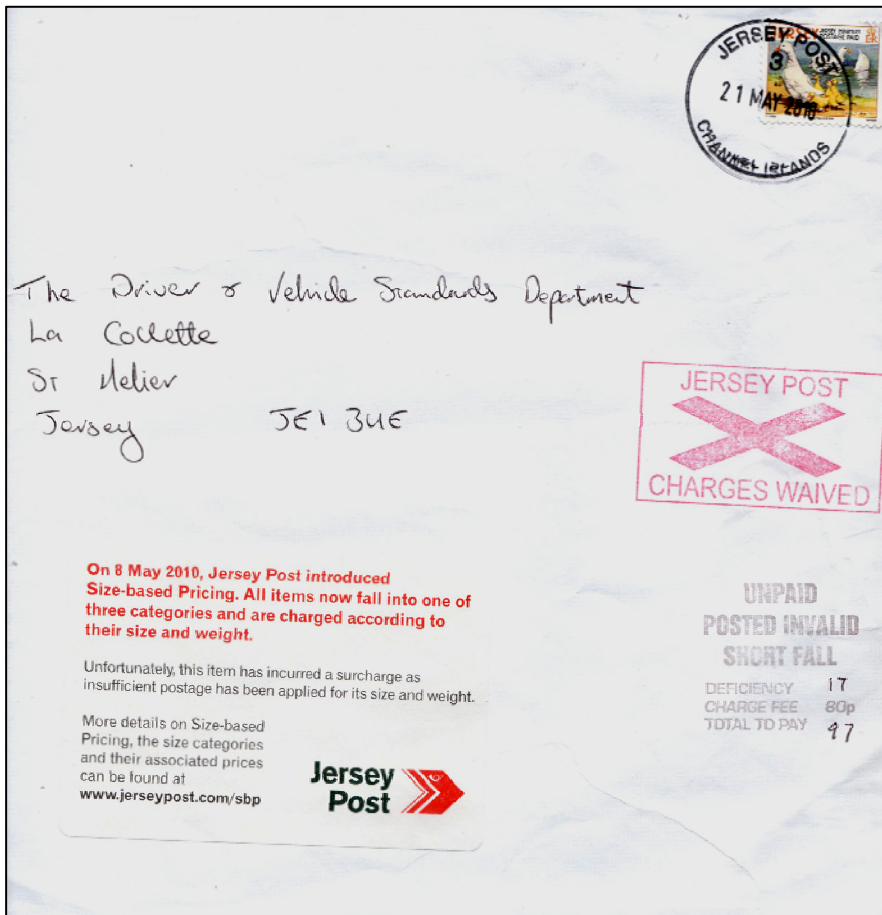 JERSEY JERSEY MINIMUM
POSTAGE PAID
JERSEY POST
3
21 MAY 2010
CHANNEL ISLANDS
The Driver & Vehicle Standards Department
La Collette
St Helier
Jersey JE1 3UE
JERSEY POST
CHARGES WAIVED
On 8 May 2010, Jersey Post introduced
Size-based Pricing. All items now fall into one of
three categories and are charged according to
their size and weight.
Unfortunately, this item has incurred a surcharge as
insufficient postage has been applied for its size and weight.
More details on Size-based
Pricing, the size categories
and their associated prices
can be found at
www.jerseypost.com/sbp
Jersey
Post
UNPAID
POSTED INVALID
SHORT FALL
DEFICIENCY 17
CHARGE FEE 80p
TOTAL TO PAY 97